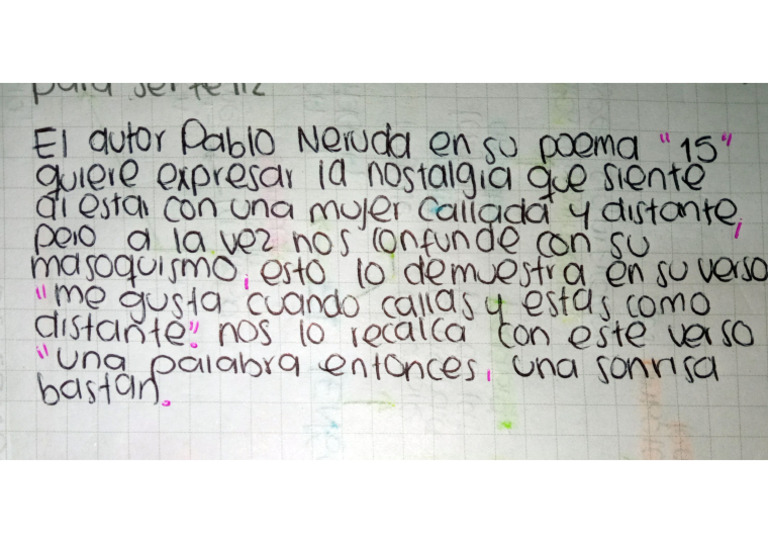 para ser feliz
El autor Pablo Neruda en su poema "15"
quiere expresar la nostalgia que siente
al estar con una mujer callada y distante,
pero a la vez nos confunde con su
masoquismo, esto lo demuestra en su verso
"me gusta cuando callas y estas como
distante". nos lo recalca con este verso
"una palabra entonces, una sonrisa
bastan.